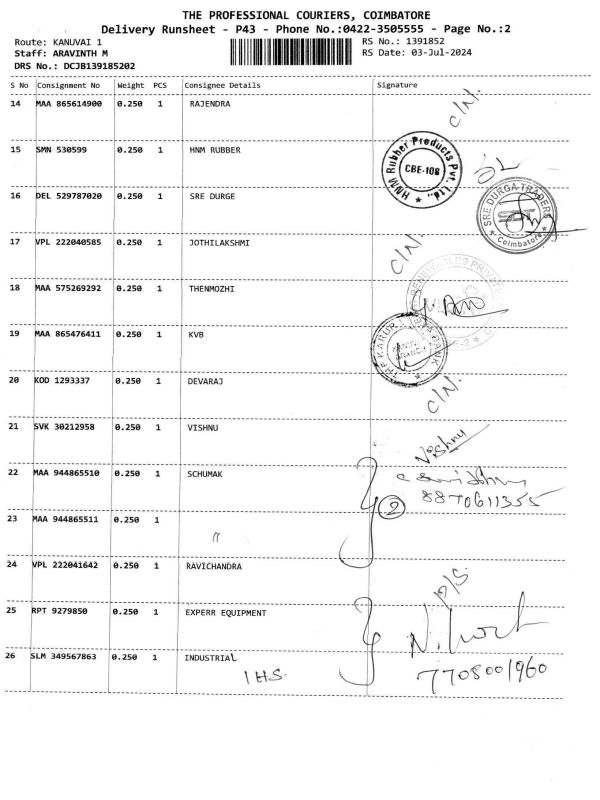 THE PROFESSIONAL COURIERS, COIMBATORE
Delivery Runsheet - P43 - Phone No.:0422-3505555 - Page No.:2
Route: KANUVAI 1 RS No.: 1391852
Staff: ARAVINTH M RS Date: 03-Jul-2024
DRS No.: DCJB139185202
S No Consignment No Weight PCS Consignee Details Signature
14 MAA 865614900 0.250 1 RAJENDRA C/N.
15 SMN 530599 0.250 1 HNM RUBBER
HNM Rubber Products Pvt. Ltd.,
CBE-108
16 DEL 529787020 0.250 1 SRE DURGE
SRE DURGA TRADERS
Coimbatore
17 VPL 222040585 0.250 1 JOTHILAKSHMI C/N.
18 MAA 575269292 0.250 1 THENMOZHI
19 MAA 865476411 0.250 1 KVB
BRANCH
20 KOD 1293337 0.250 1 DEVARAJ C/N.
21 SVK 30212958 0.250 1 VISHNU Vishnu
22 MAA 944865510 0.250 1 SCHUMAK
8870611355
2
23 MAA 944865511 0.250 1 〃
24 VPL 222041642 0.250 1 RAVICHANDRA D/S.
25 RPT 9279850 0.250 1 EXPERR EQUIPMENT
26 SLM 349567863 0.250 1 INDUSTRIAL
IHS. 7708001960